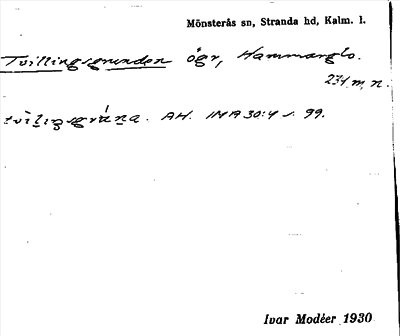 Mönsterås sn, Stranda hd, Kalm. l.
Tvillingsgrunden ögr, Hammarglo.
234 m, n.
AH. IMA 30:4 s. 99.
Ivar Modéer 1930